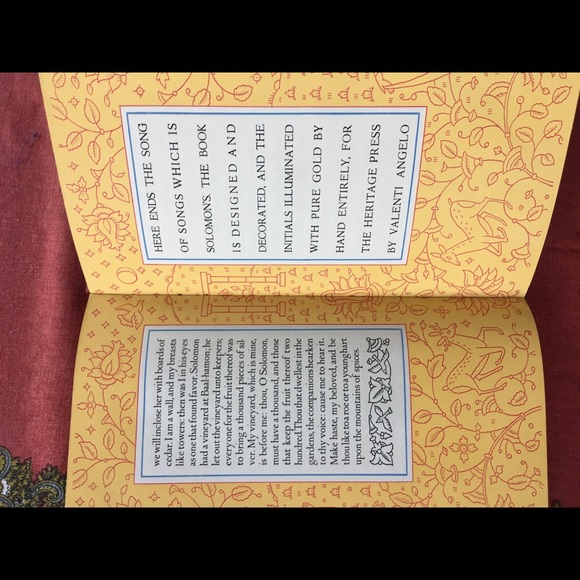 we will inclose her with boards of
cedar. I am a wall, and my breasts
like towers: then was I in his eyes
as one that found favor. Solomon
had a vineyard at Baal-hamon; he
let out the vineyard unto keepers;
every one for the fruit thereof was
to bring a thousand pieces of sil-
ver. My vineyard, which is mine,
is before me: thou, O Solomon,
must have a thousand, and those
that keep the fruit thereof two
hundred. Thou that dwellest in the
gardens, the companions hearken
to thy voice: cause me to hear it.
Make haste, my beloved, and be
thou like to a roe or to a young hart
upon the mountains of spices.
HERE ENDS THE SONG
OF SONGS WHICH IS
SOLOMON'S. THE BOOK
IS DESIGNED AND
DECORATED, AND THE
INITIALS ILLUMINATED
WITH PURE GOLD BY
HAND ENTIRELY, FOR
THE HERITAGE PRESS
BY VALENTI ANGELO